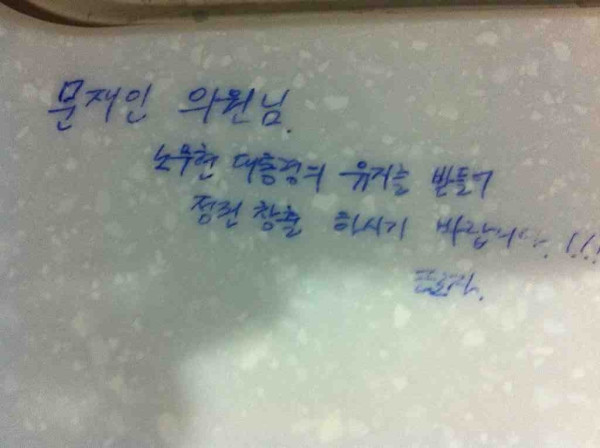 문재인 의원님.
노무현 대통령의 유지를 받들어
정권 창출 하시기 바랍니다.!!!